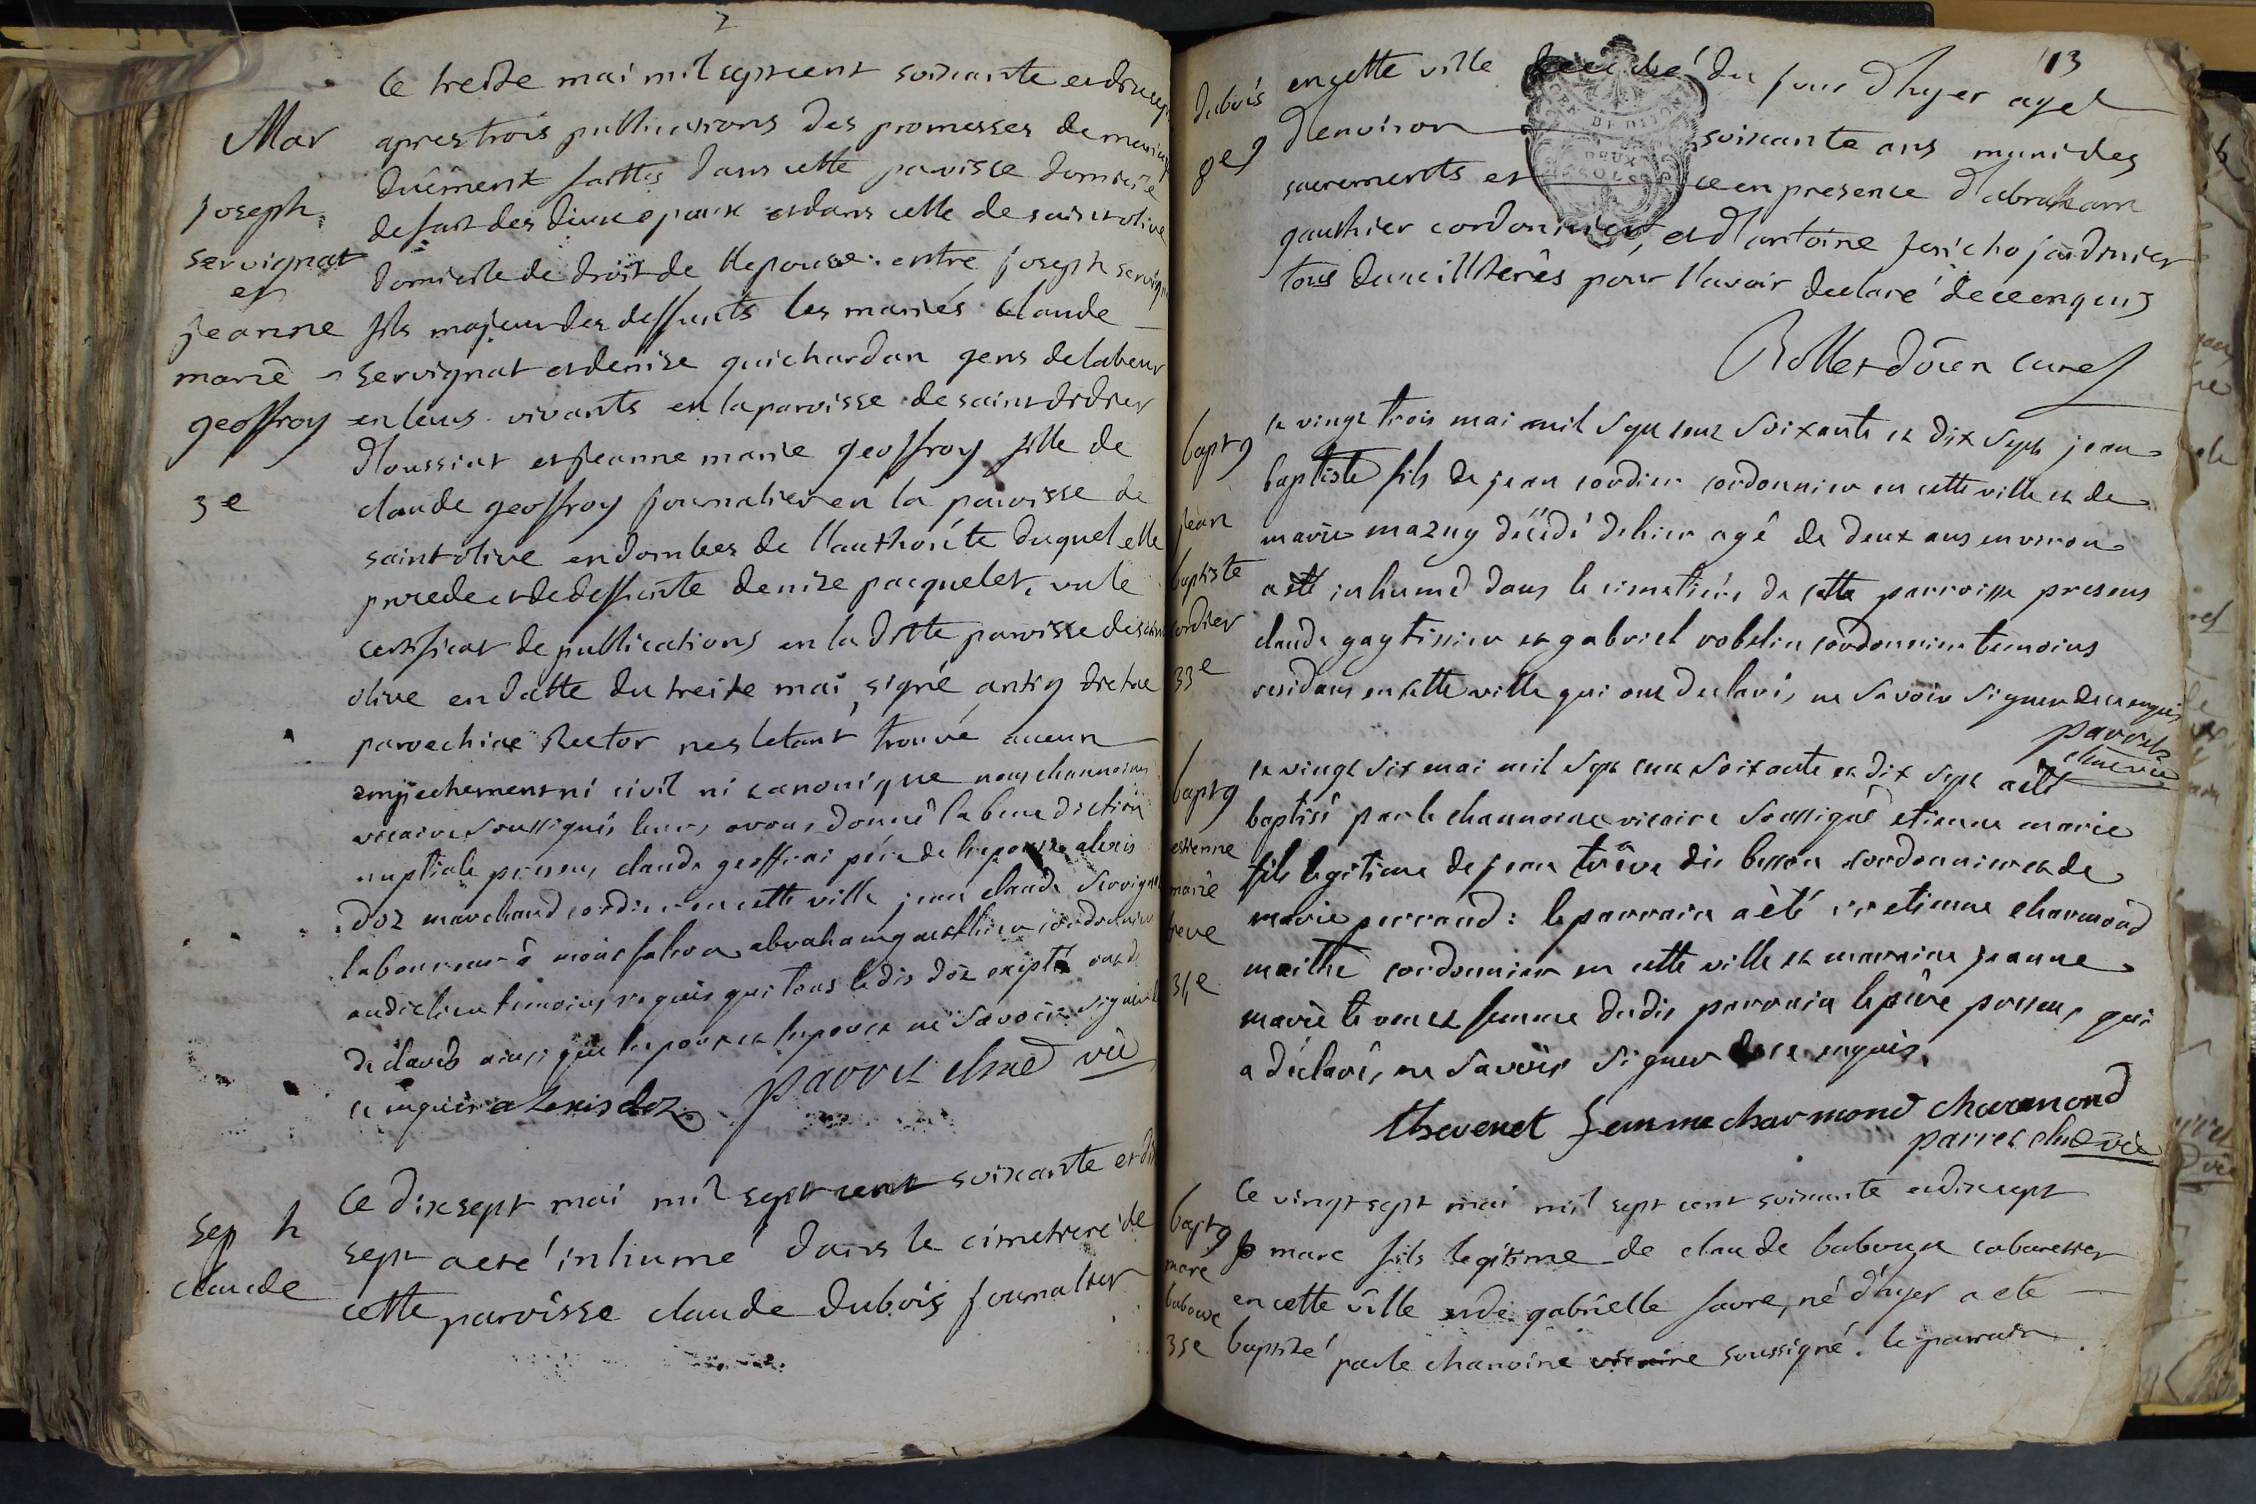 2
Mar
joseph
servignat
et
jeanne
marie
geoffroy
3e
Ce treize mai mil sept cent soixante et dix sept
apres trois publications des promesses de mariage
duêment faittes dans cette paroisse domicile
de fait des deux epoux et dans celle de saint olive
domicile de droit de l'epouse. entre joseph servignat
fils majeur des deffunts les mariés claude
servignat et denise guichardan gens de labeur
en leurs vivants en la paroisse de saint didier
d'oussiat et jeanne marie geoffroy fille de
claude geoffroy journalier en la paroisse de
saint olive en dombes de l'authorité duquel elle
procede et de deffunte denize pacquelet, vu le
certificat de publications en la ditte paroisse de saint
olive en datte du treize mai, signé antig dictae
parochiae Rector ne s'etant trouvé aucun
empechement ni civil ni canonique nous channoine
vicaire soussignés leurs avons donné la benediction
nuptiale presens claude geoffrai pére de l'epouse alexis
doz marchand cordier en cette ville jean claude servignat
laboureur à abraham gauthier cordonnier
audit lieu temoins requis qui tous ledit doz excepté ont
déclarés ainsi que l'epoux et l'epouse ne savoir signer de
ce enquis alexis doz parret chne vic
sep h
claude
Ce dix sept mai mil sept cent soixante et dix
sept a eté inhumé dans le cimetiere de
cette paroisse claude dubois journalier
113
dubois
8e
en cette ville decedé du jour d'hyer agé
d'environ soixante ans muni des
sacrements et ce en presence d'abraham
gauthier cordonnier, et d'antoine jericho jardinier
tous deux illiterés pour l'avoir declaré de ce enquis
GEN DE DIJON
DEUX
SOLS
Rollet doien curé
bapt
jean
baptiste
cordier
33e
le vingt trois mai mil sept cent soixante et dix sept jean
baptiste fils de jean cordier cordonnier en cette ville et de
marie mazuy décédé d'hier agé de deux ans environ
a été inhumé dans le cimetiére de cette parroisse presens
claude gay tissier et gabriel robelin cordonnier temoins
residans en cette ville qui ont declaré, ne savoir signer de ce enquis
parret
chne vic
bapt
estienne
marie
treve
34e
le vingt six mai mil sept cent soixante et dix sept a été
baptisé par le channoine vicaire soussigné etienne marie
fils legitime de jean trêve dit besson cordonnier et de
marie perraud: le parrain a été sr etienne charmond
maitre cordonnier en cette ville et marraine jeanne
marie tevenet femme dudit parrain le pére present, qui
a déclaré, ne savoir signer de ce enquis.
thevenet femme charmond charmond
parret chne vic
bapt
marc
baboux
35e
Ce vingt sept mai mil sept cent soixante et dix sept
marc fils legitime de claude baboux cabaretier
en cette ville et de gabrielle favre, né d'hyer a eté
baptizé par le chanoine vicaire soussigné. le parrain